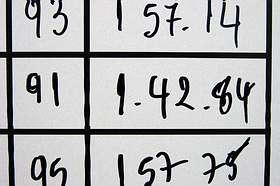 93 1 57.14
91 1.42.84
95 1 57 75